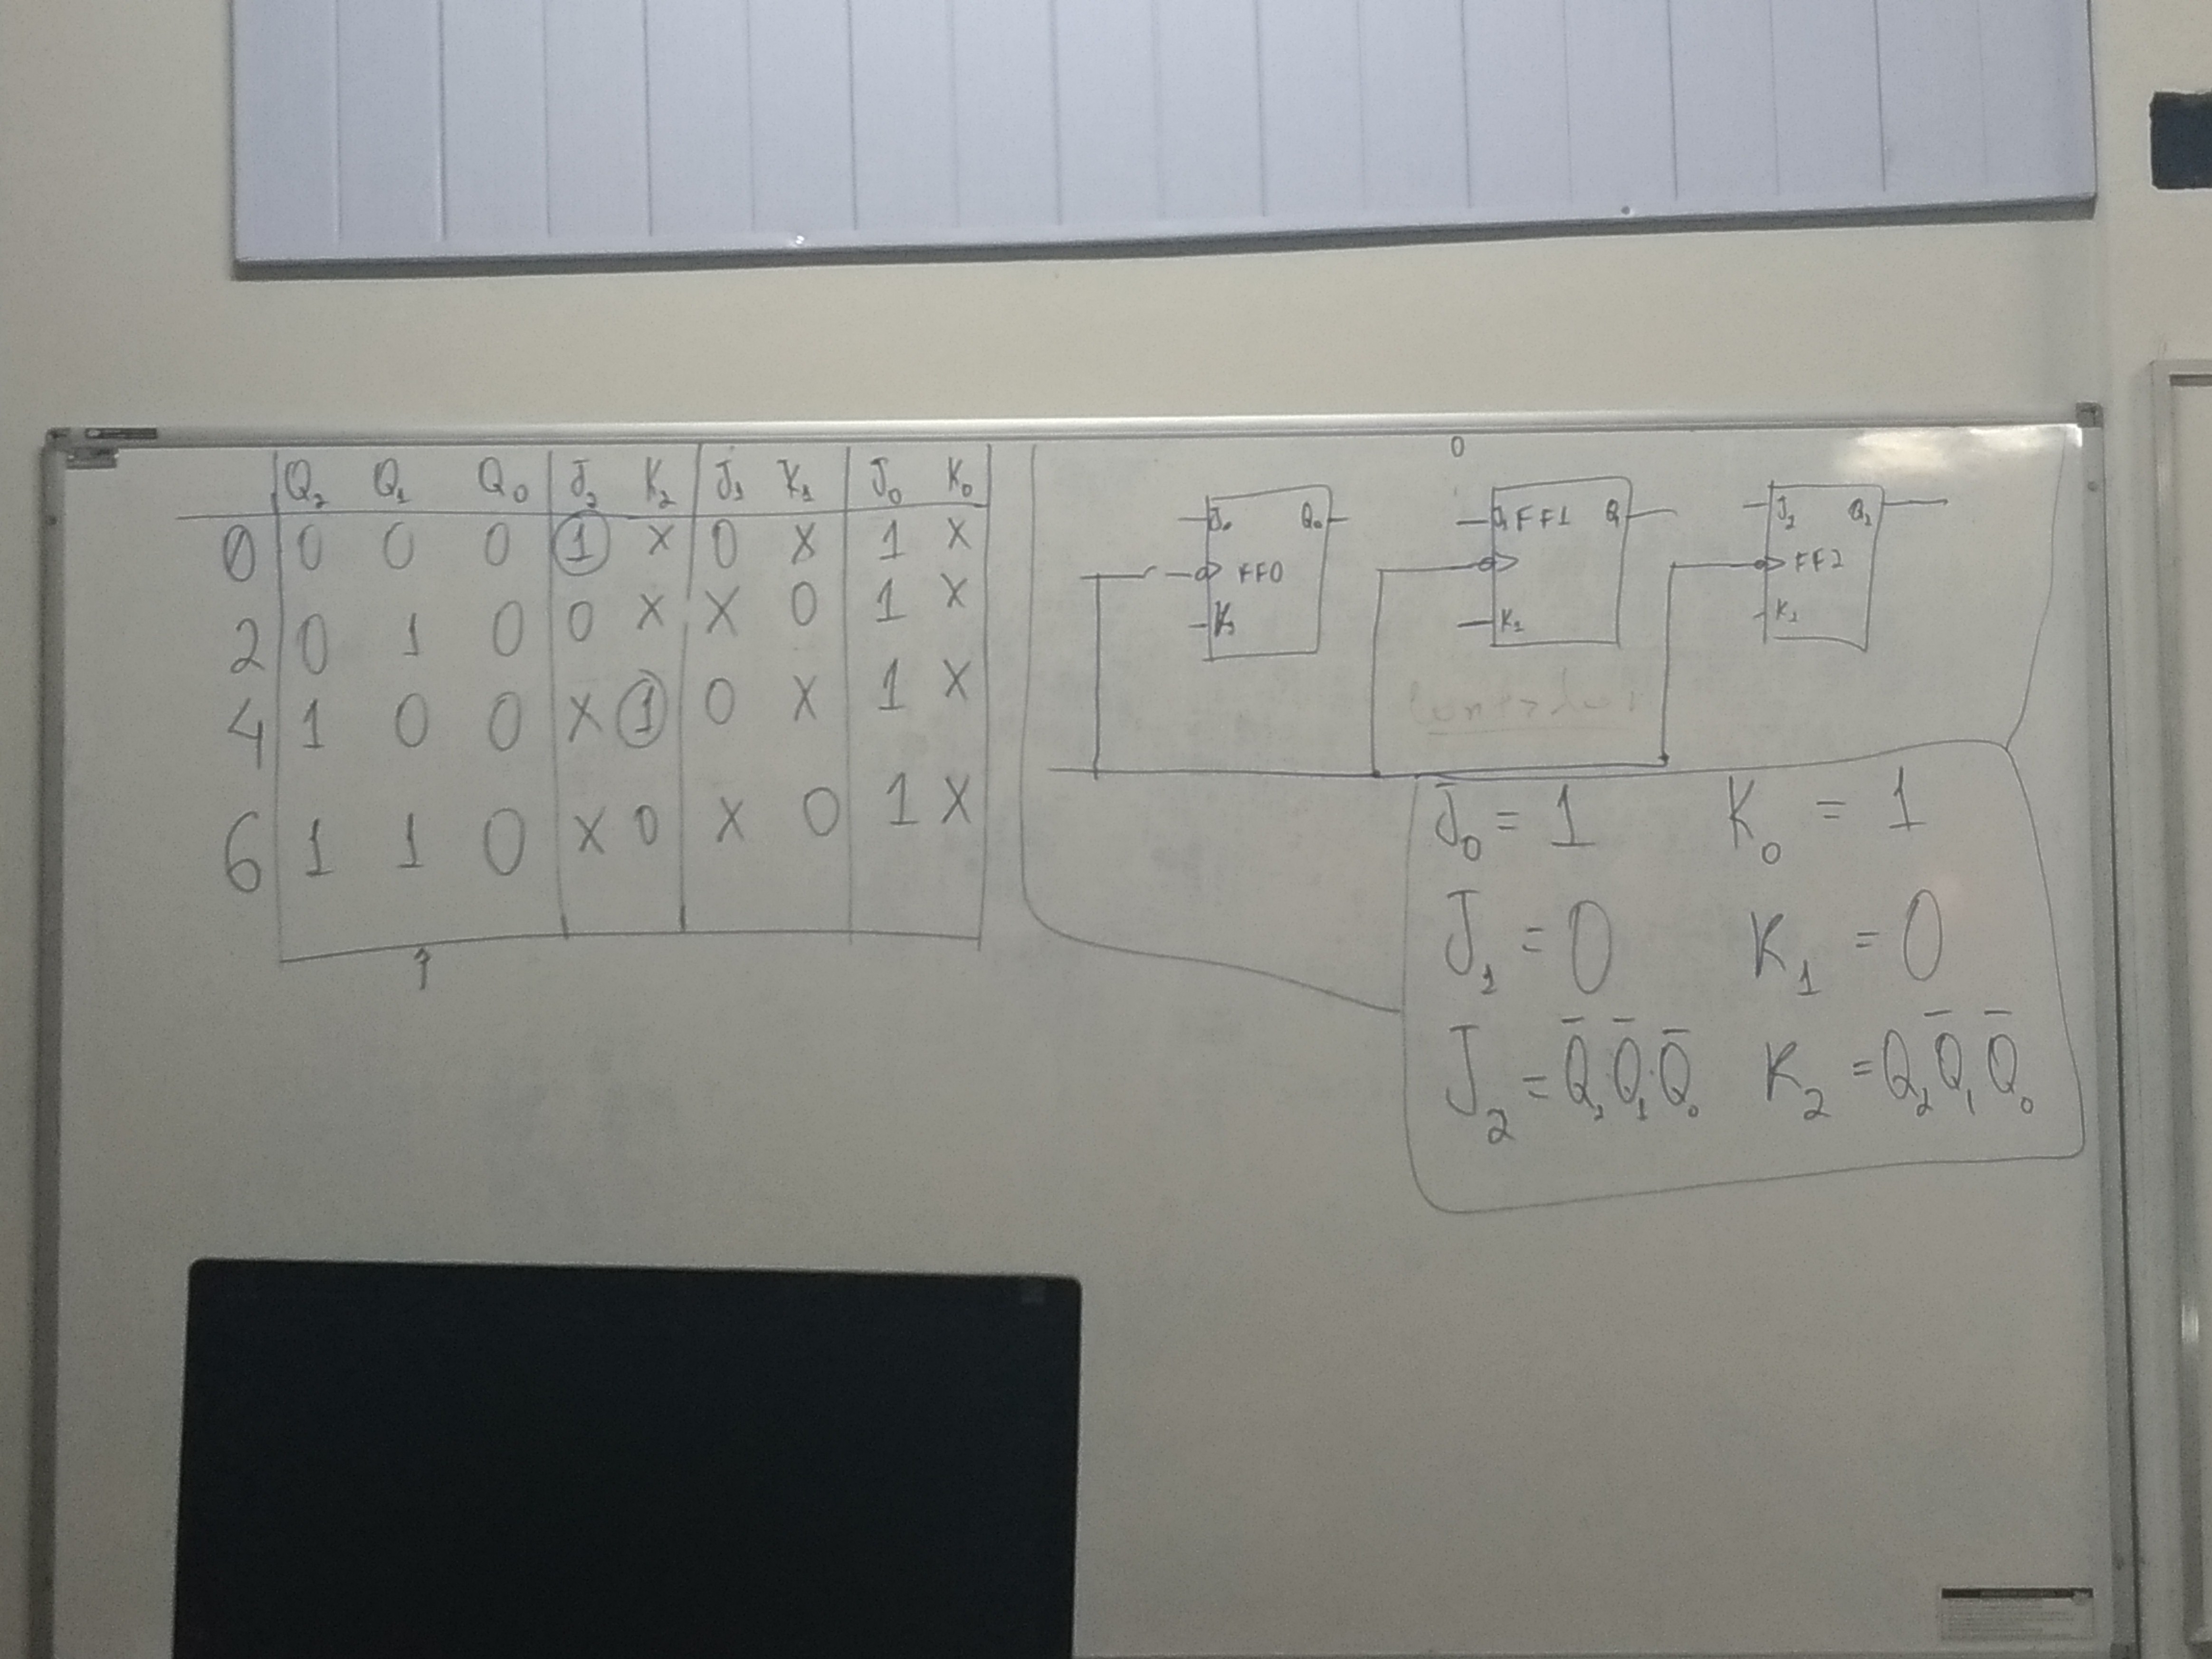 Q₂ Q₁ Q₀ J₂ K₂ J₁ K₁ J₀ K₀
0 0 0 0 1 X 0 X 1 X
2 0 1 0 0 X X 0 1 X
4 1 0 0 X 1 0 X 1 X
6 1 1 0 X 0 X 0 1 X
0
J₀ Q₀
FF0
J₁ FF1 Q
K₁
J₂ Q₂
FF2
J₀ = 1 K₀ = 1
J₁ = 0 K₁ = 0
J₂ = Q̄₂·Q̄₁·Q̄₀ K₂ = Q₂Q̄₁Q̄₀